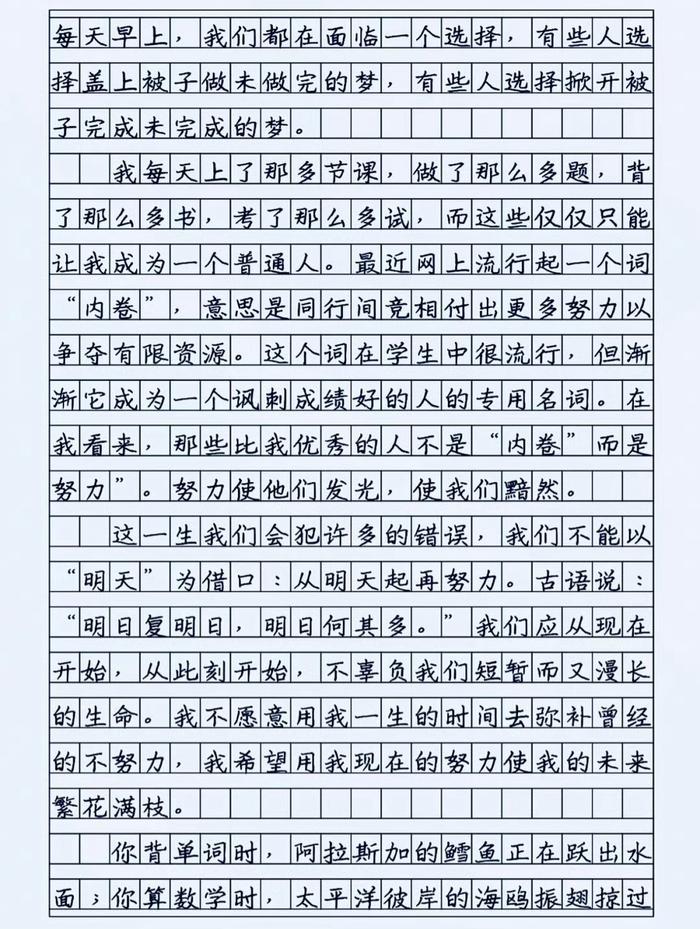 每天早上，我们都在面临一个选择，有些人选
择盖上被子做未做完的梦，有些人选择掀开被
子完成未完成的梦。
我每天上了那多节课，做了那么多题，背
了那么多书，考了那么多试，而这些仅仅只能
让我成为一个普通人。最近网上流行起一个词
“内卷”，意思是同行间竞相付出更多努力以
争夺有限资源。这个词在学生中很流行，但渐
渐它成为一个讽刺成绩好的人的专用名词。在
我看来，那些比我优秀的人不是“内卷”而是
努力”。努力使他们发光，使我们黯然。
这一生我们会犯许多的错误，我们不能以
“明天”为借口：从明天起再努力。古语说：
“明日复明日，明日何其多。”我们应从现在
开始，从此刻开始，不辜负我们短暂而又漫长
的生命。我不愿意用我一生的时间去弥补曾经
的不努力，我希望用我现在的努力使我的未来
繁花满枝。
你背单词时，阿拉斯加的鳕鱼正在跃出水
面；你算数学时，太平洋彼岸的海鸥振翅掠过